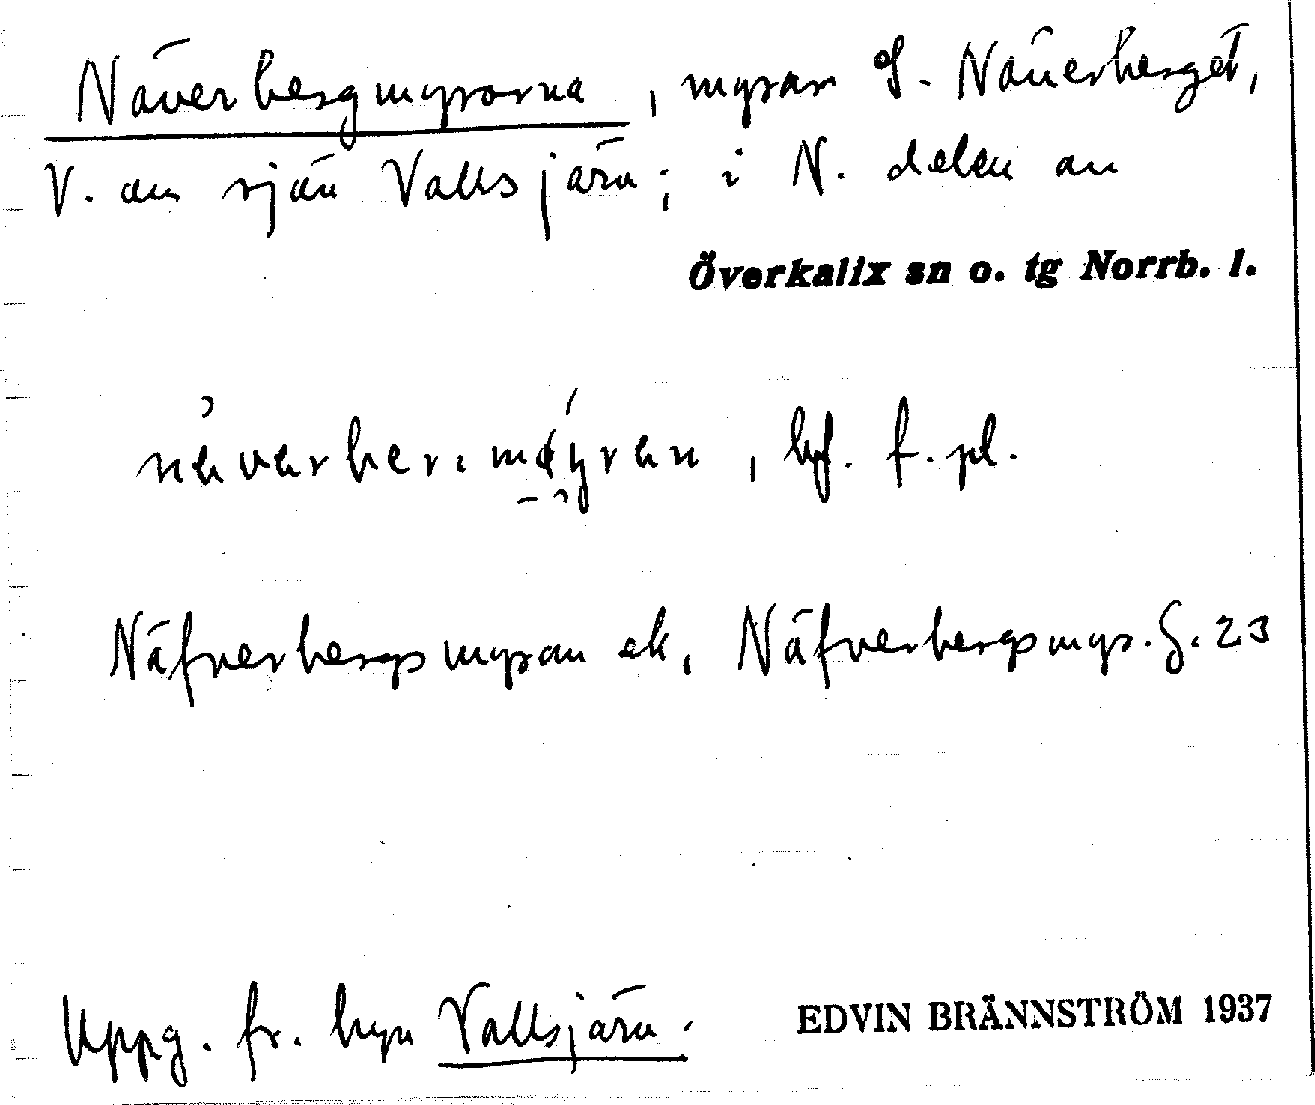 Näverbergmyrorna, myrar S. Näverberget,
V. om sjön Vallsjärv; i N. delen av
Överkalix sn o. tg Norrb. l.
bf. f. pl.
Näfverbergsmyran ek, Näfverbergsmyr. G. 23
Uppg. fr. byn Vallsjärv.
EDVIN BRÄNNSTRÖM 1937